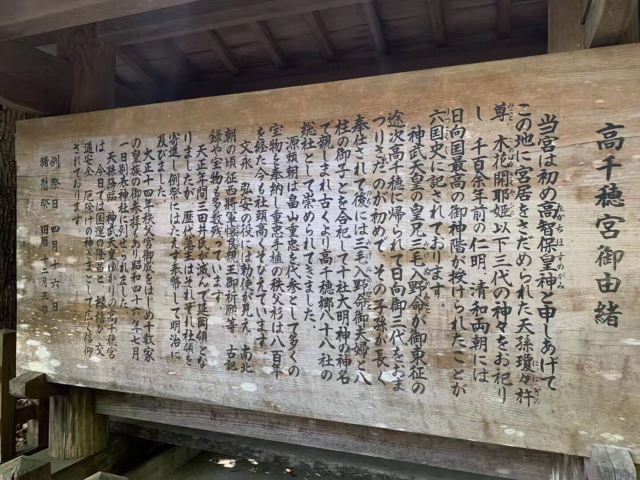 高千穂宮御由緒
当宮は初め高智保皇神と申しあげて
たかちほすめかみ
この地に宮居をさだめられた天孫瓊々杵
ににぎの
尊 木花開耶姫以下三代の神々をお祀り
みこと
し 千百余年前の仁明、清和両朝には
日向国最高の御神階が授けられたことが
六国史に記されております。
神武天皇の皇兄三毛入野命が御東征の
途次高千穂に帰られて日向御三代をおま
つりさだめたのが初めで その子孫が長く
奉仕されて後には三毛入野命御夫婦と八
柱の御子とを合祀して十社大明神の神名
で親しまれ古くより高千穂郷八十八社の
総社として崇められてきました。
源頼朝は畠山重忠を代参として多くの
宝物を奉納し重忠手植の秩父杉は八百年
を経た今も社頭高くそびえています。
文永 弘安の役には勅使が見え 南北
朝の頃 征西将軍懐良親王御祈願等 古記
録や宝物も多数残っています。
天正年間三田井氏が滅んで延岡領とな
りましたが 歴代藩主はそれぞれ社領を
寄進し例祭にはたえず奉幣して明治に
及びました。
大正十四年秩父宮御成をはじめ十数家
の皇族の御参拝もあり昭和四十六年七月
一日別表神社に列せられました。
天孫降臨 神武天皇ゆかりの高千穂宮
は 古来国運の隆昌と 縁結び
通安全 厄除けの神さまとして広く信仰
されております。
例祭日 四月十六日
猪懸祭 旧暦十二月三日